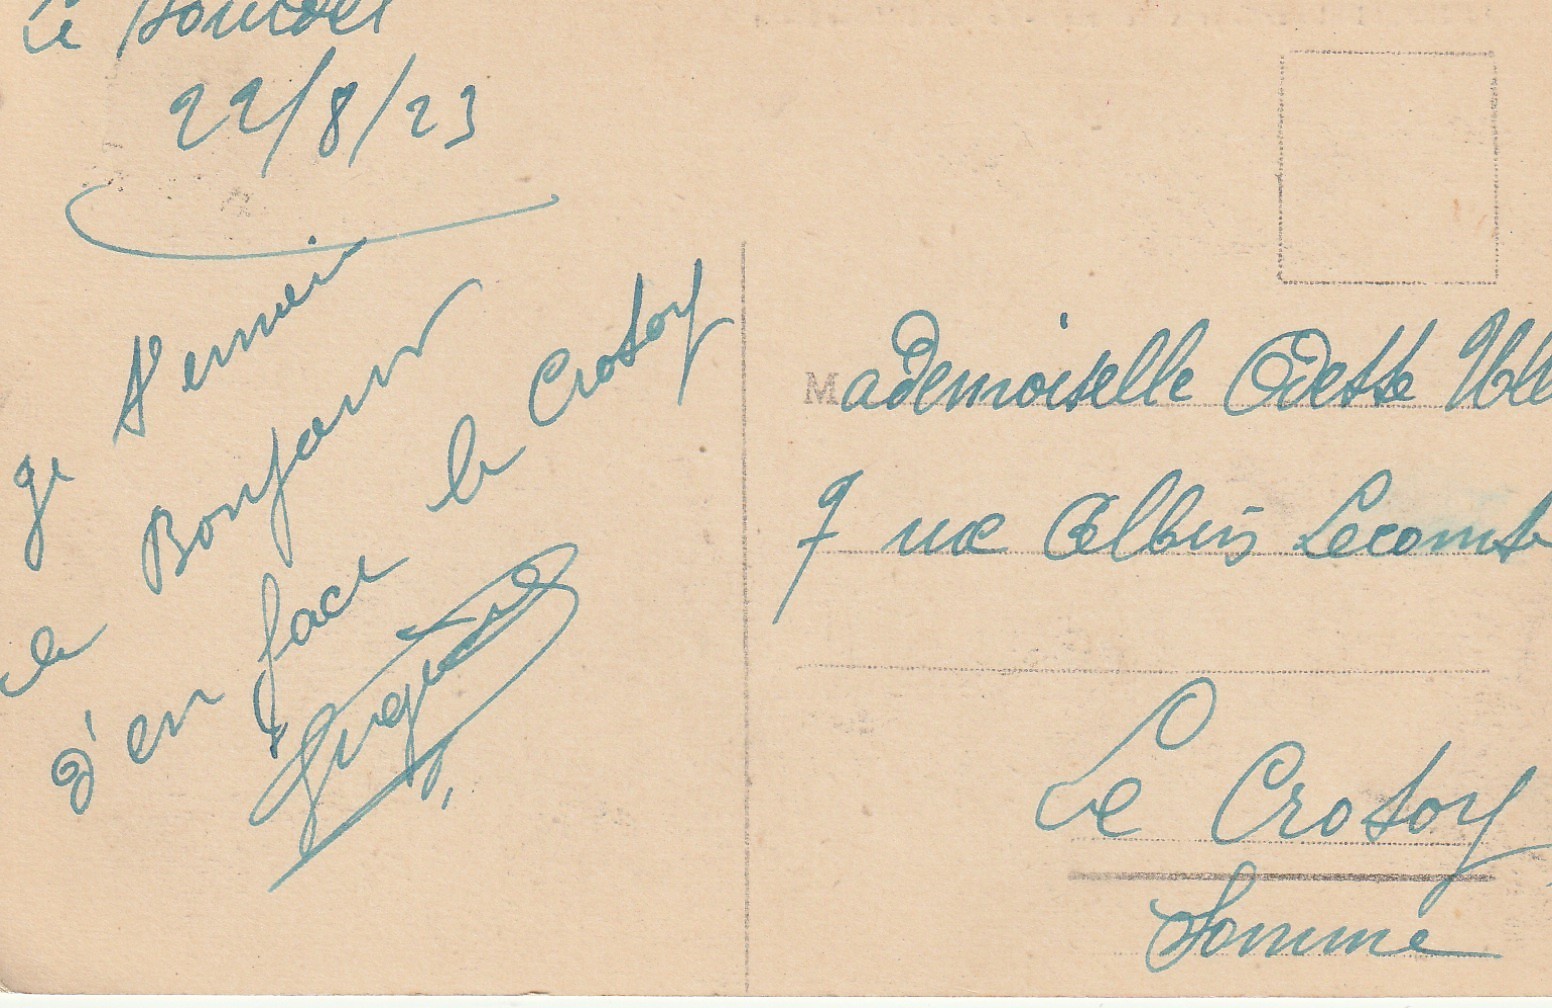 Le Hourdel
22/8/23
Je t'envoie
le Bonjour
d'en face le Crotoy
Mademoiselle Odette
7 rue Albin Lecomte
Le Crotoy
Somme